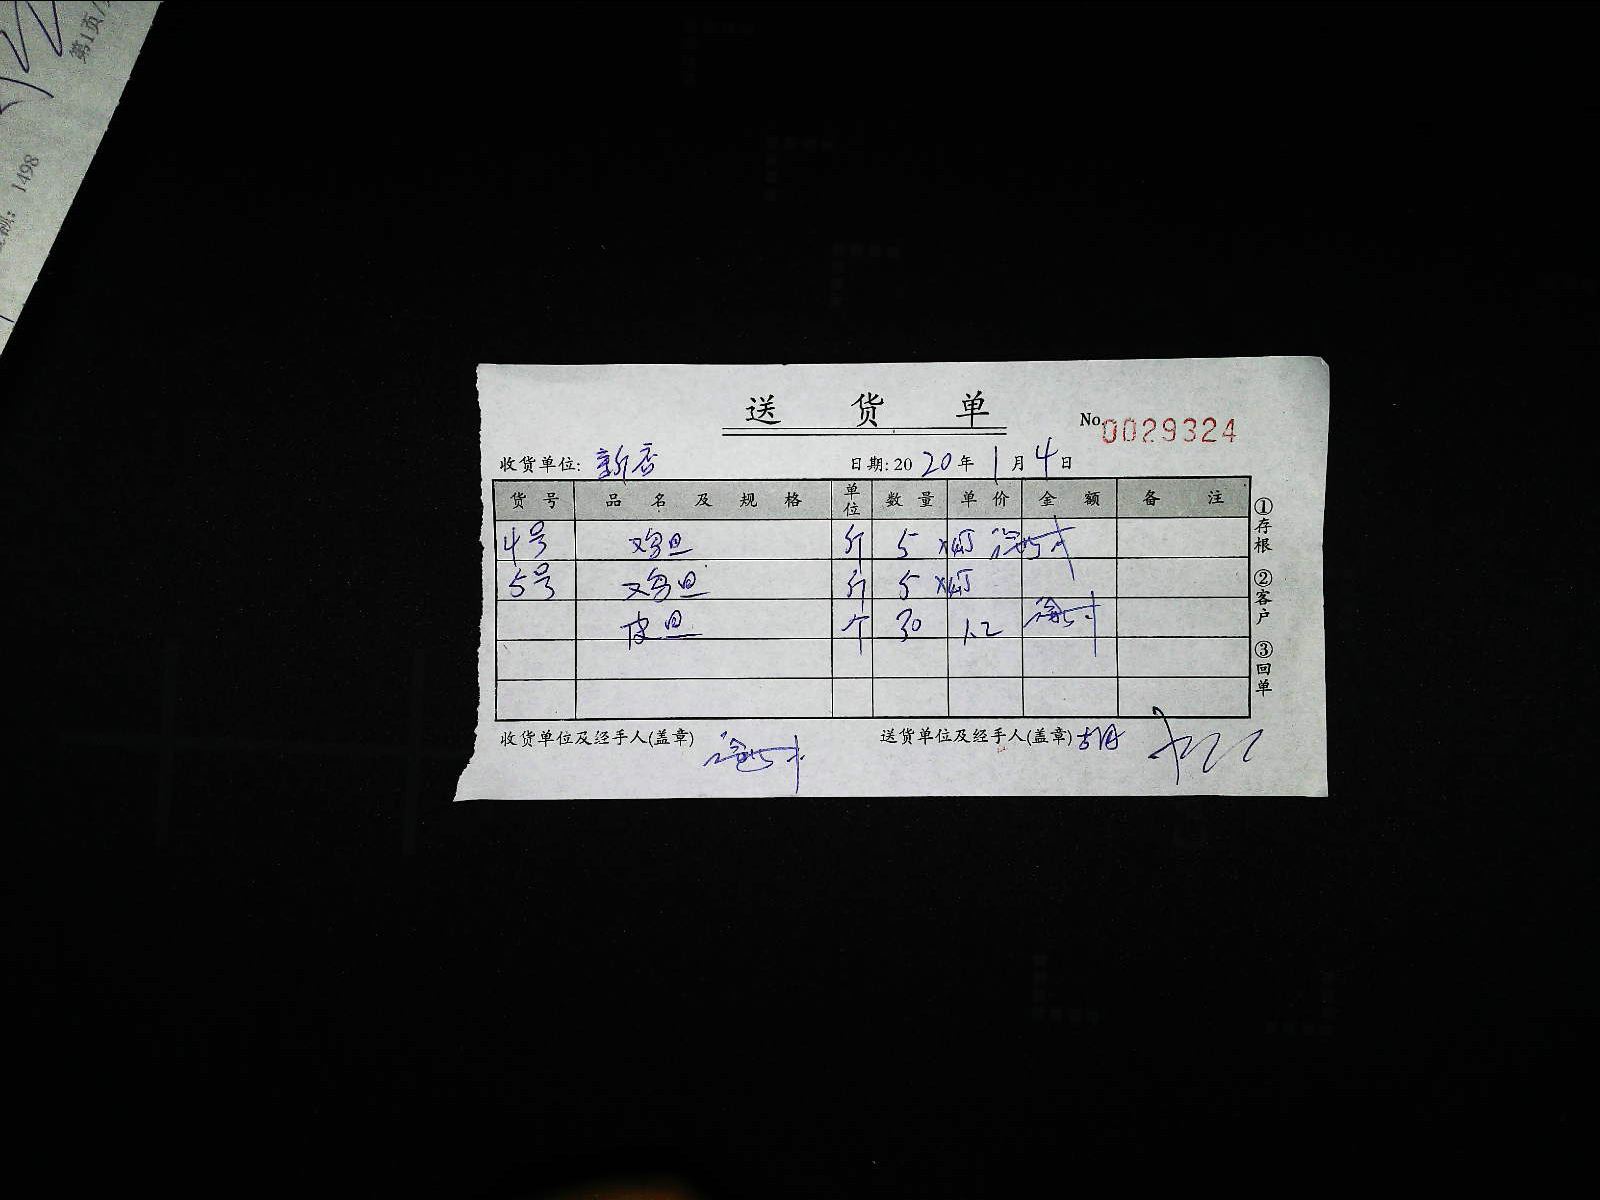 第1页/
额: 1498
送 货 单
No. 0029324
收货单位: 新店 日期: 2020年 1月 4日
货号 品名及规格 单位 数量 单价 金额 备注
4号 鸡旦 斤 5
5号 鸡旦 斤 5
皮旦 个 30 1.2
①存根 ②客户 ③回单
收货单位及经手人(盖章) 送货单位及经手人(盖章) 胡